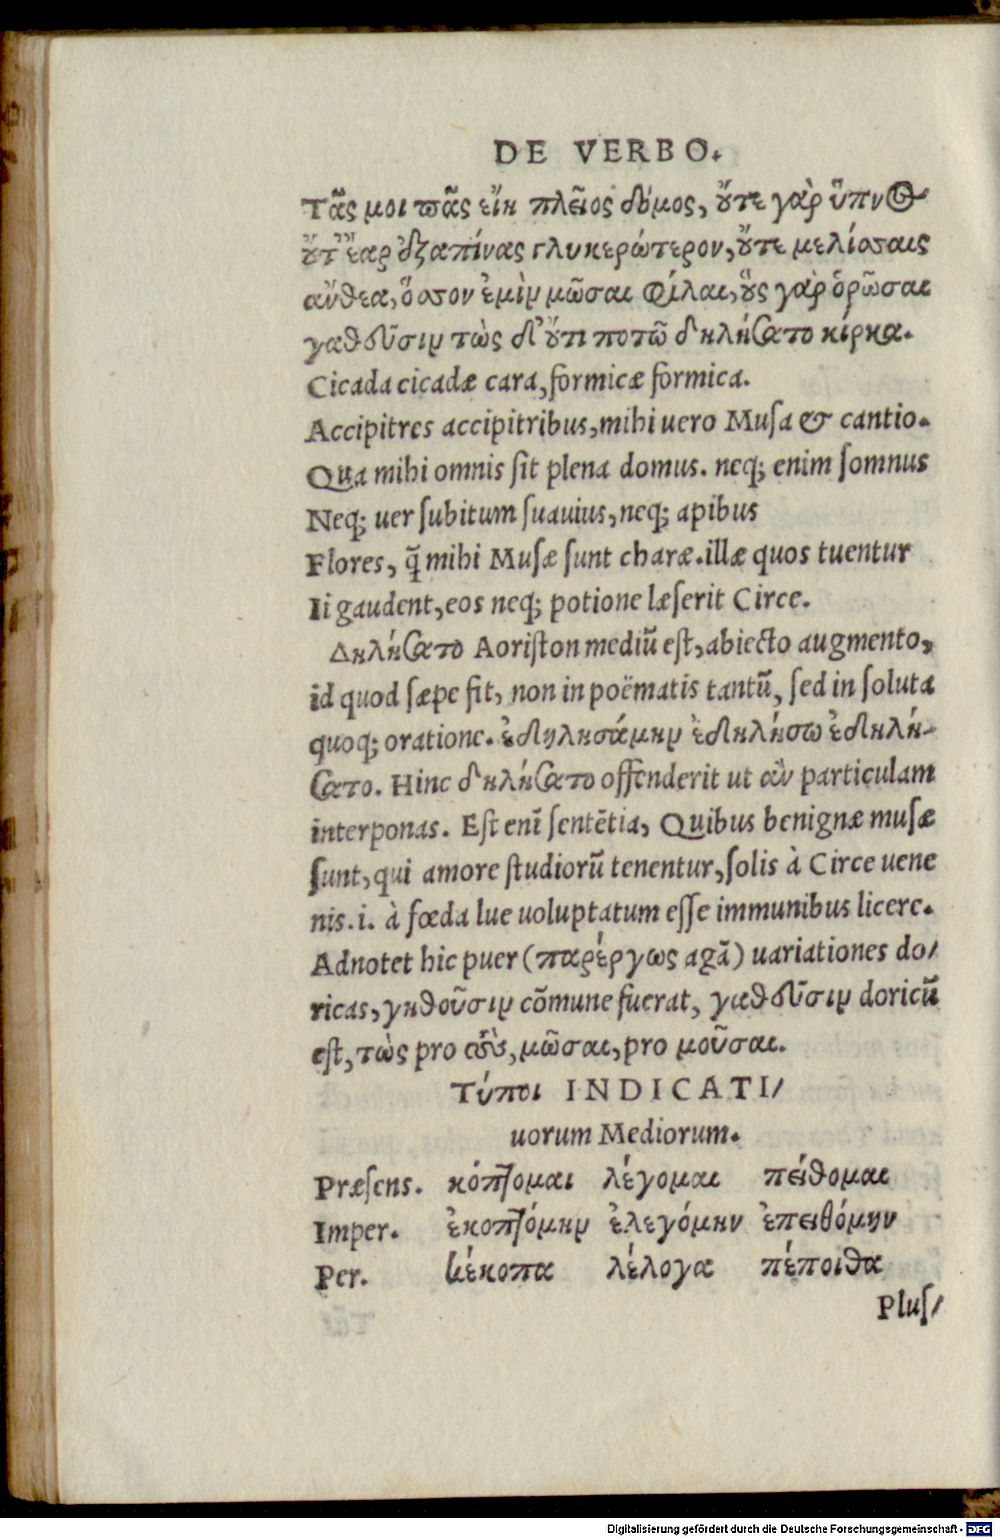 DE VERBO.
Τᾶς μοι πᾶς εἴη πλεῖος δόμος, οὔτε γὰρ ὕπνος
οὔτ' ἔαρ ἐξαπίνας γλυκερώτερον, οὔτε μελίσσαις
ἄνθεα, ὅσσον ἐμὶν μῶσαι φίλαι, οὓς γὰρ ὁρῶσαι
γαθοῦσιν τὼς δ' οὔτι ποτῶ δηλήσατο κίρκα.
Cicada cicadæ cara, formicæ formica.
Accipitres accipitribus, mihi uero Musa & cantio.
Qua mihi omnis ſit plena domus. neq; enim ſomnus
Neq; uer ſubitum ſuauius, neq; apibus
Flores, q̃ mihi Muſæ ſunt charæ. illæ quos tuentur
Ii gaudent, eos neq; potione læſerit Circe.
Δηλήσατο Aoriſton mediũ eſt, abiecto augmento,
id quod ſæpe fit, non in poëmatis tantũ, ſed in ſoluta
quoq; oratione. ἐδηλησάμην ἐδηλήσω ἐδηλή-
σατο. Hinc δηλήσατο offenderit ut ἂν particulam
interponas. Eſt enĩ ſentẽtia, Quibus benignæ muſæ
ſunt, qui amore ſtudiorũ tenentur, ſolis à Circe uene
nis. i. à fœda lue uoluptatum eſſe immunibus licere.
Adnotet hic puer (παρέργως agã) uariationes do/
ricas, γηθοῦσιν cõmune fuerat, γαθοῦσιν doricũ
eſt, τὼς pro οὓς, μῶσαι, pro μοῦσαι.
Τύποι INDICATI/
uorum Mediorum.
Præſens. κόπτομαι λέγομαι πείθομαι
Imper. ἐκοπτόμην ἐλεγόμην ἐπειθόμην
Per. κέκοπα λέλογα πέποιθα
Pluſ/
Digitalisierung gefördert durch die Deutsche Forschungsgemeinschaft - DFG